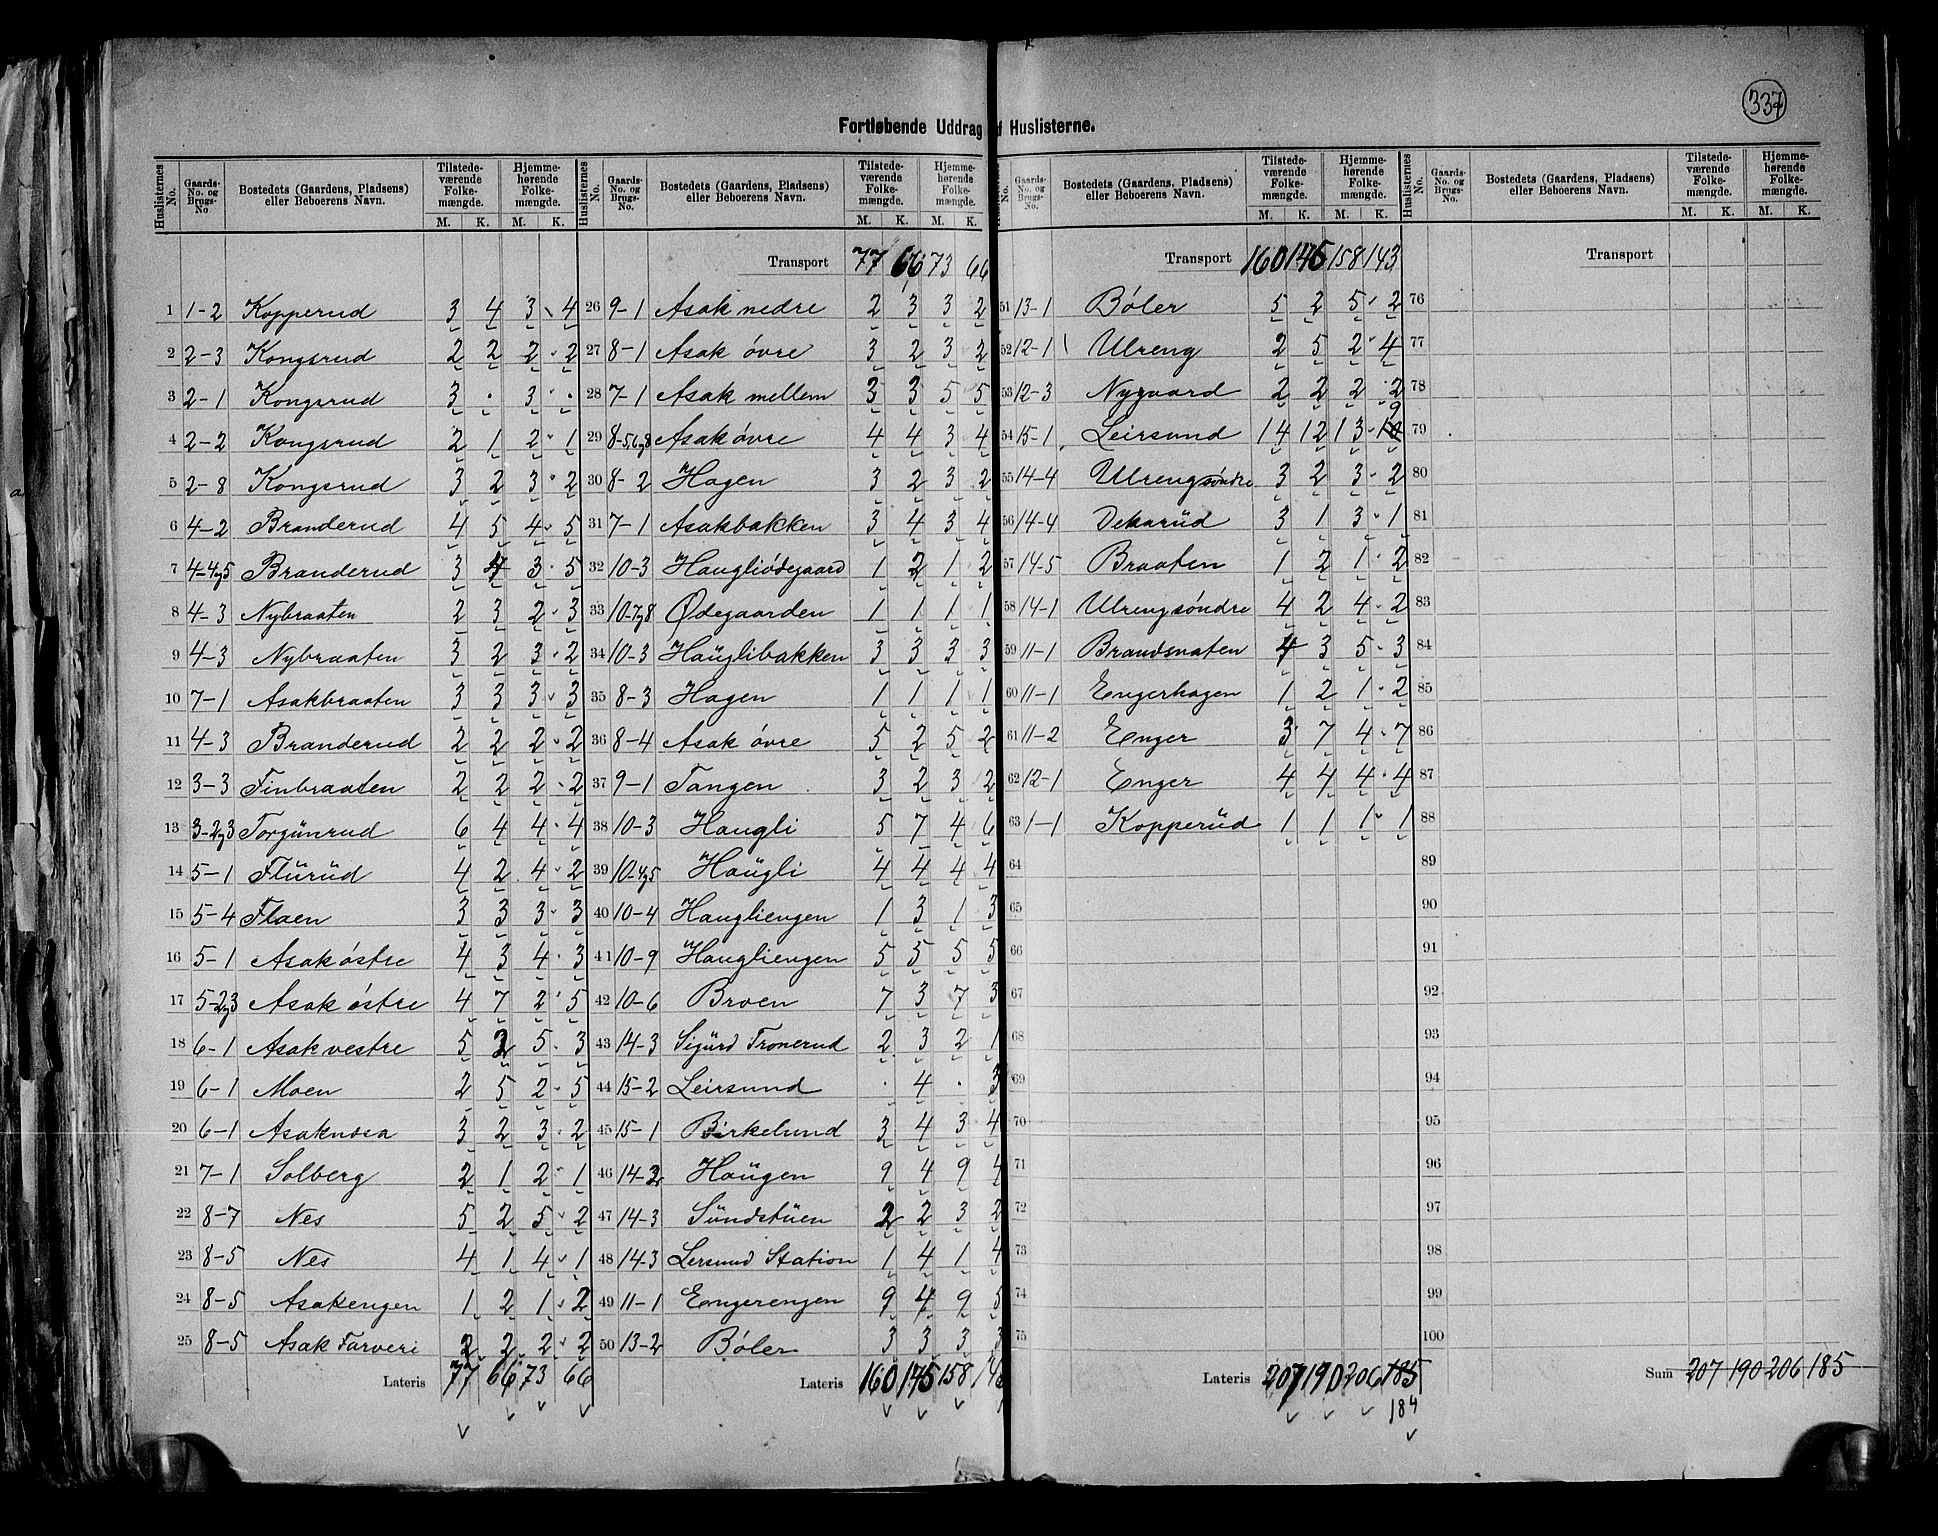 337
Fortløbende Uddrag af Huslisterne.
Huslisternes No. Gaards-No. og Brugs-No. Bostedets (Gaardens, Pladsens) eller Beboerens Navn. Tilstedeværende Folkemængde. M. K. Hjemmehørende Folkemængde. M. K.
1 1-2 Kopperud 3 4 3 4
2 2-3 Kongsrud 2 2 2 2
3 2-1 Kongsrud 3 . 3 .
4 2-2 Kongsrud 2 1 2 1
5 2-8 Kongsrud 3 2 3 2
6 4-2 Branderud 4 5 4 5
7 4-4og5 Branderud 3 4 3 5
8 4-3 Nybraaten 2 3 2 3
9 4-3 Nybraaten 3 2 3 2
10 7-1 Asakbraaten 3 3 3 3
11 4-3 Branderud 2 2 2 2
12 3-3 Finbraaten 2 2 2 2
13 3-2og3 Torgünrud 6 4 4 4
14 5-1 Flürüd 4 2 4 2
15 5-4 Flaen 3 3 3 3
16 5-1 Asak østre 4 3 4 3
17 5-2og3 Asak östre 4 7 2 5
18 6-1 Asak vestre 5 2 5 3
19 6-1 Moen 2 5 2 5
20 6-1 Asaknosa 3 2 3 2
21 7-1 Solberg 2 1 2 1
22 8-7 Nes 5 2 5 2
23 8-5 Nes 4 1 4 1
24 8-5 Asakengen 1 2 1 2
25 8-5 Asak Farveri 2 2 2 2
Lateris 77 66 73 66
Huslisternes No. Gaards-No. og Brugs-No. Bostedets (Gaardens, Pladsens) eller Beboerens Navn. Tilstedeværende Folkemængde. M. K. Hjemmehørende Folkemængde. M. K.
Transport 77 66 73 66
26 9-1 Asak nedre 2 3 3 2
27 8-1 Asak övre 3 2 3 2
28 7-1 Asak mellem 3 3 5 5
29 8-5,6og8 Asak övre 4 4 3 4
30 8-2 Hagen 3 2 3 2
31 7-1 Asakbakken 3 4 3 4
32 10-3 Haugliödegaard 1 2 1 2
33 10-7og8 Ødegaarden 1 1 1 1
34 10-3 Haüglibakken 3 3 3 3
35 8-3 Hagen 1 1 1 1
36 8-4 Asak övre 5 2 5 2
37 9-1 Tangen 3 2 3 2
38 10-3 Haugli 5 7 4 6
39 10-4og5 Haügli 4 4 4 4
40 10-4 Haugliengen 1 3 1 3
41 10-9 Haugliengen 5 5 5 5
42 10-6 Broen 7 3 7 3
43 14-3 Sigürd Tronerud 2 3 2 1
44 15-2 Leirsund . 4 . 3
45 15-1 Birkelund 3 4 3 4
46 14-2 Haügen 9 4 9 4
47 14-3 Sündstüen 2 2 3 2
48 14-3 Lersund Station 1 4 1 4
49 11-1 Engerengen 9 4 9 5
50 13-2 Böler 3 3 3 3
Lateris 160 145 158 14
No. Gaards-No. og Brugs-No. Bostedets (Gaardens, Pladsens) eller Beboerens Navn. Tilstedeværende Folkemængde. M. K. Hjemmehørende Folkemængde. M. K.
Transport 160 145 158 143
51 13-1 Böler 5 2 5 2
52 12-1 Ulreng 2 5 2 4
53 12-3 Nygaard 2 2 2 2
54 15-1 Leirsund 14 12 13 10 9
55 14-4 Ulrengsöndre 3 2 3 2
56 14-4 Dekarüd 3 1 3 1
57 14-5 Braaten 1 2 1 2
58 14-1 Ulrengsöndre 4 2 4 2
59 11-1 Brandsnaten 4 3 5 3
60 11-1 Engerhagen 1 2 1 2
61 11-2 Enger 3 7 4 7
62 12-1 Enger 4 4 4 4
63 1-1 Kopperüd 1 1 1 1
64
65
66
67
68
69
70
71
72
73
74
75
Lateris 207 190 206 185
184
Huslisternes No. Gaards-No. og Brugs-No. Bostedets (Gaardens, Pladsens) eller Beboerens Navn. Tilstedeværende Folkemængde. M. K. Hjemmehørende Folkemængde. M. K.
Transport
76
77
78
79
80
81
82
83
84
85
86
87
88
89
90
91
92
93
94
95
96
97
98
99
100
Sum 207 190 206 185